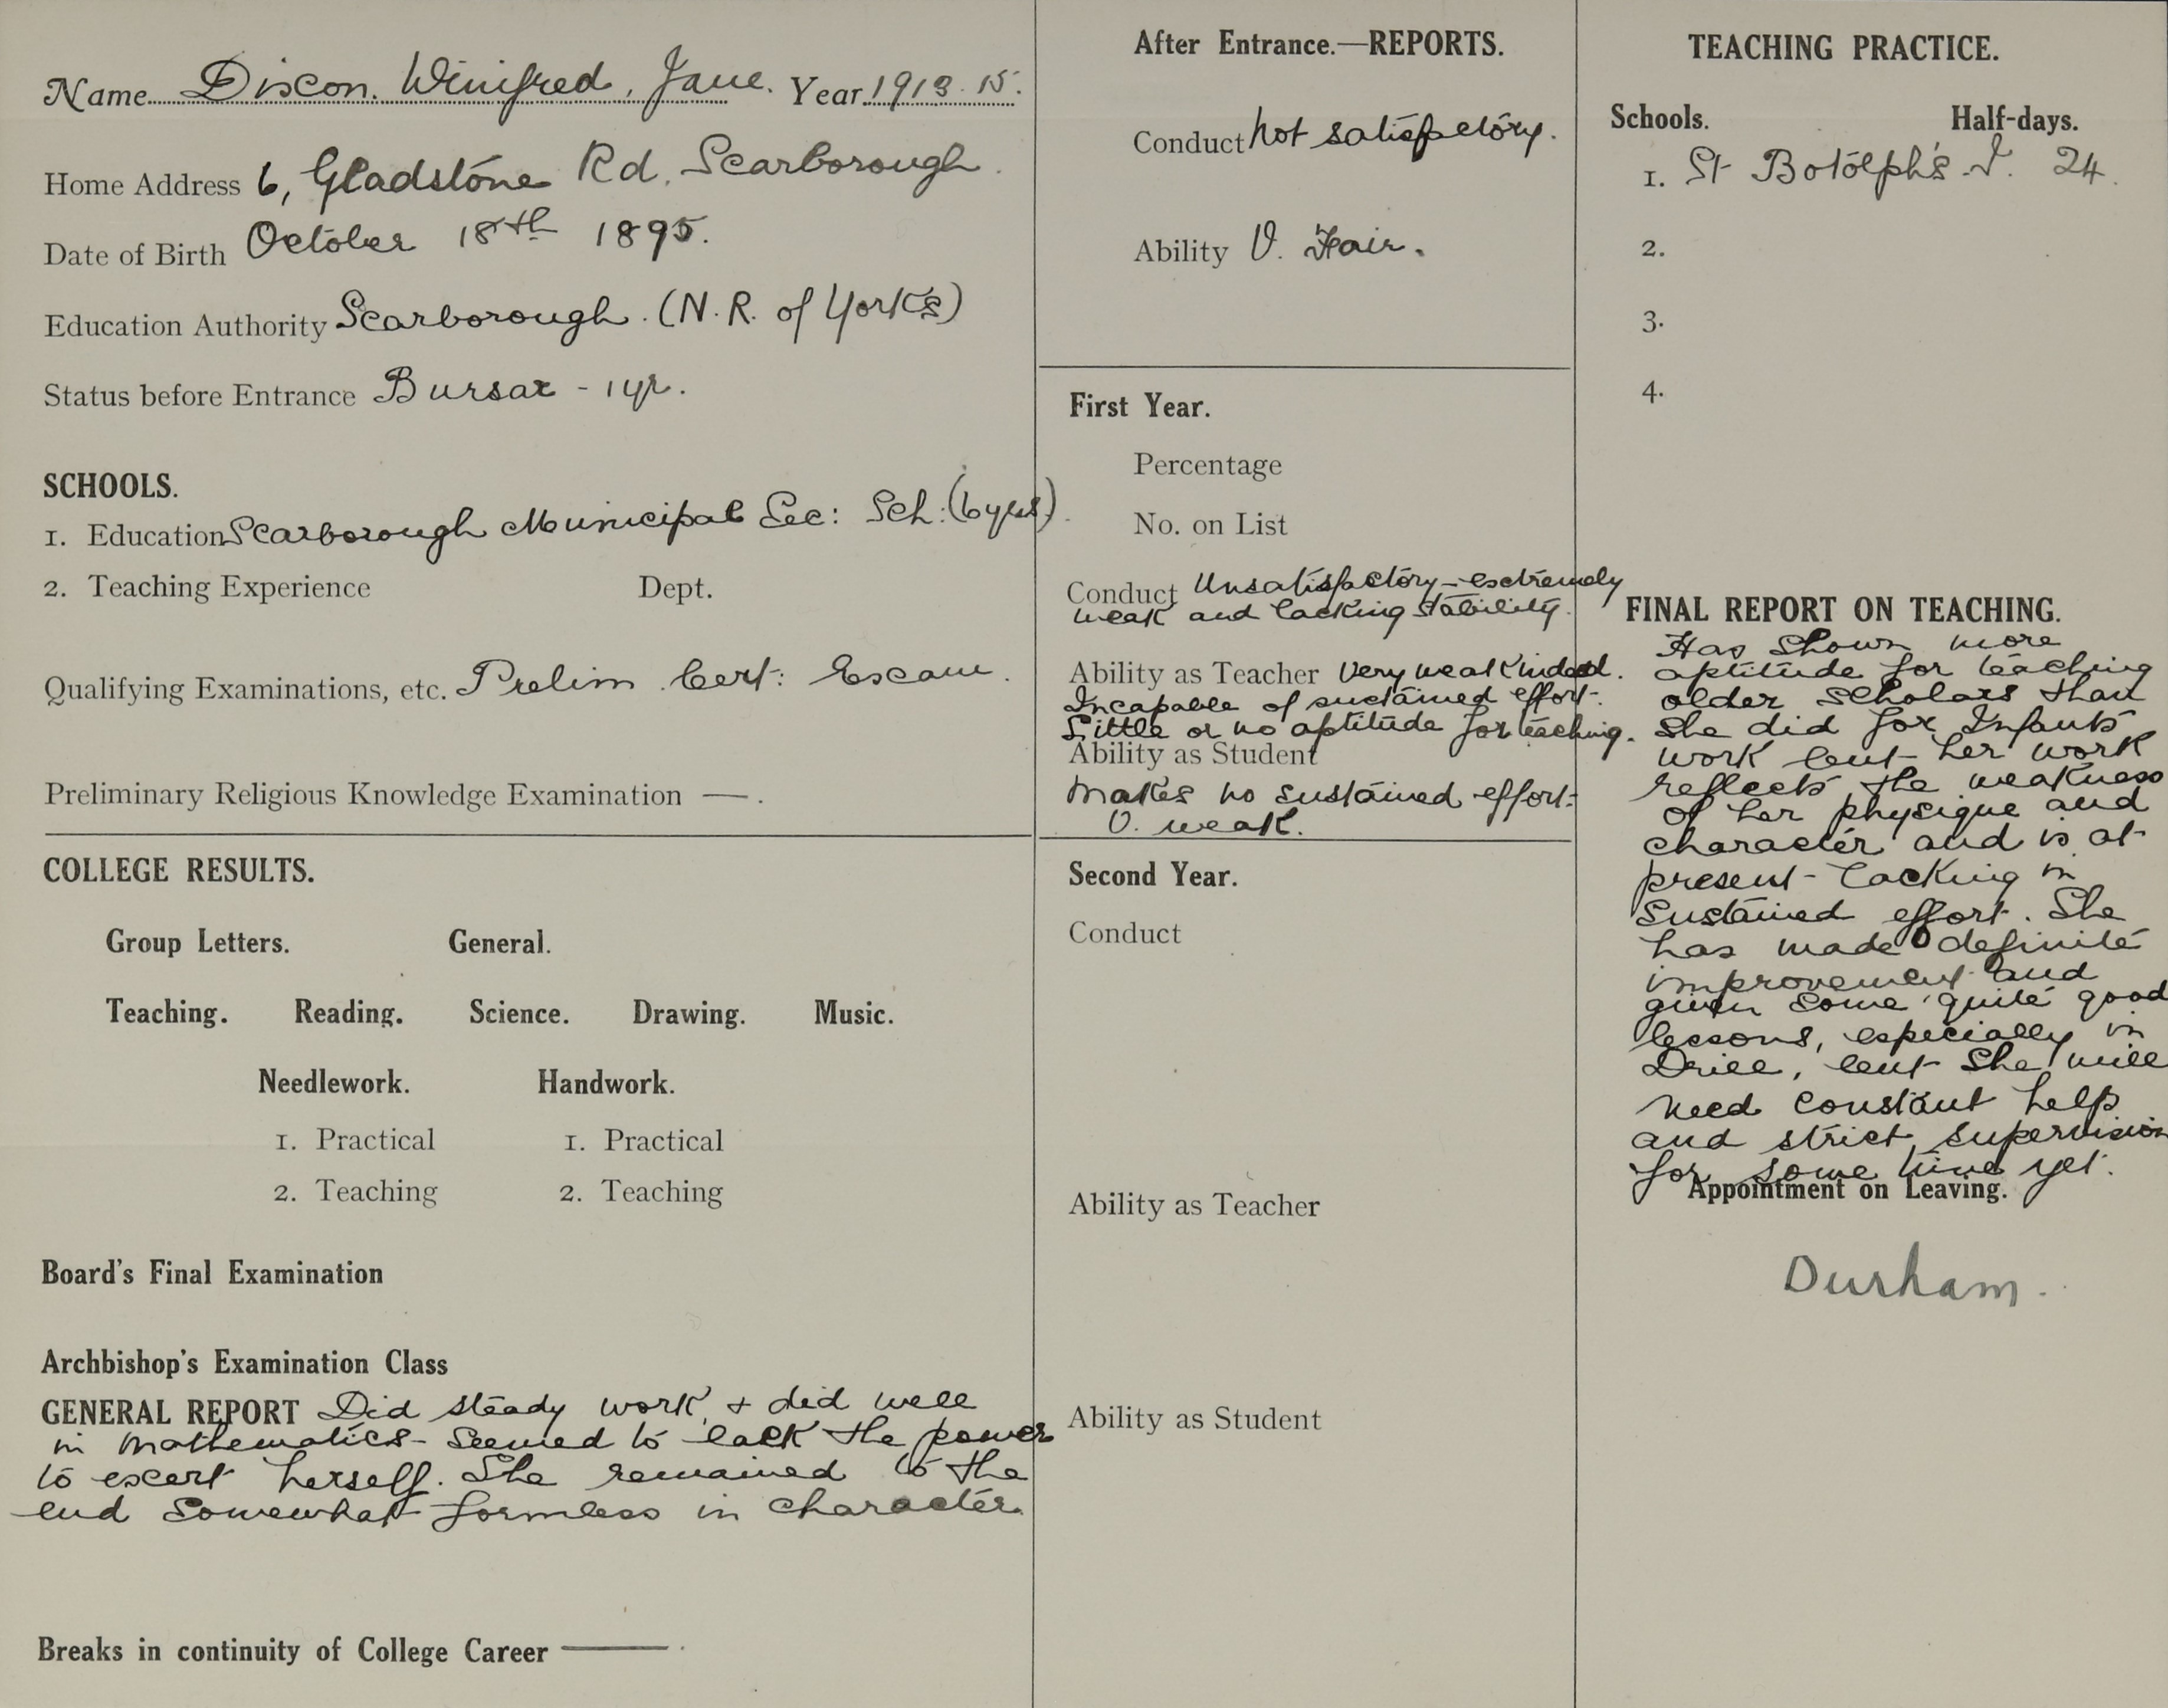 Name Dixon. Winifred, Jane. Year 1913-15.
Home Address 6, Gladstone Rd. Scarborough.
Date of Birth October 18th 1895.
Education Authority Scarborough. (N.R. of Yorks)
Status before Entrance Bursar - 1 yr.
SCHOOLS.
1. Education Scarborough Municipal Sec: Sch: (6 yrs).
2. Teaching Experience Dept.
Qualifying Examinations, etc. Prelim. Cert: Exam.
Preliminary Religious Knowledge Examination —.
COLLEGE RESULTS.
Group Letters. General.
Teaching. Reading. Science. Drawing. Music.
Needlework. Handwork.
1. Practical 1. Practical
2. Teaching 2. Teaching
Board's Final Examination
Archbishop's Examination Class
GENERAL REPORT Did steady work, & did well
in Mathematics - Seemed to lack the power
to exert herself. She remained to the
end somewhat formless in character.
Breaks in continuity of College Career ——.
After Entrance.—REPORTS.
Conduct Not satisfactory.
Ability V. Fair.
First Year.
Percentage
No. on List
Conduct Unsatisfactory - extremely
weak and lacking stability.
Ability as Teacher Very weak indeed.
Incapable of sustained effort.
Little or no aptitude for teaching.
Ability as Student
Makes no sustained effort-
V. weak.
Second Year.
Conduct
Ability as Teacher
Ability as Student
TEACHING PRACTICE.
Schools. Half-days.
1. St Botolph's I. 24.
2.
3.
4.
FINAL REPORT ON TEACHING.
Has shown more
aptitude for teaching
older scholars than
she did for Infants
work but her work
reflects the weakness
of her physique and
character and is at
present lacking in
sustained effort. She
has made definite
improvement and
given some quite good
lessons, especially in
Drill, but she will
need constant help
and strict supervision
for some time yet.
Appointment on Leaving.
Durham.